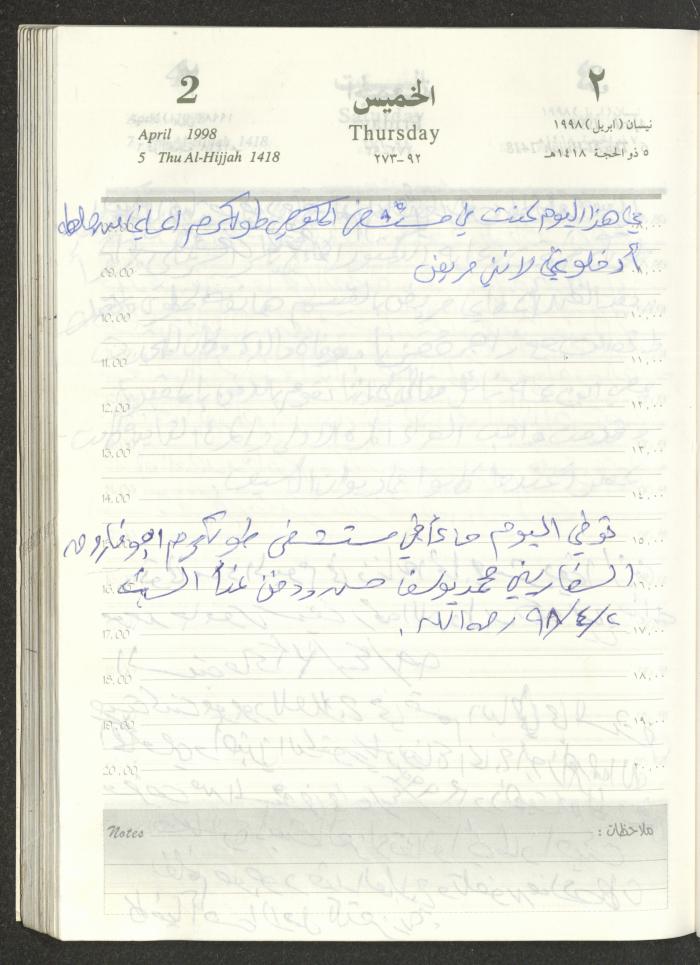 2
الخميس
٢
April 1998
Thursday
نيسان (ابريل) ١٩٩٨
5 Thu Al-Hijjah 1418
٩٢-٢٧٣
٥ ذو الحجة ١٤١٨هـ
في هذا اليوم كنت في مستشفى الحكومي طولكرم اعاني
أدخلوني لانني مريض
09.00
10.00 ١٠,٠٠
11.00 ١١,٠٠
12.00 ١٢,٠٠
13.00 ١٣,٠٠
14.00 ١٤,٠٠
توفي اليوم مساءً في مستشفى طولكرم ابو فاروق
١٥,٠٠
السفاريني محمد يوسف ودفن غداً السبت
16.00 ١٦,٠٠
٩٨/٤/٢ رحمه الله.
17.00 ١٧,٠٠
18.00 ١٨,٠٠
19.00 ١٩,٠٠
20.00
Notes ملاحظات :